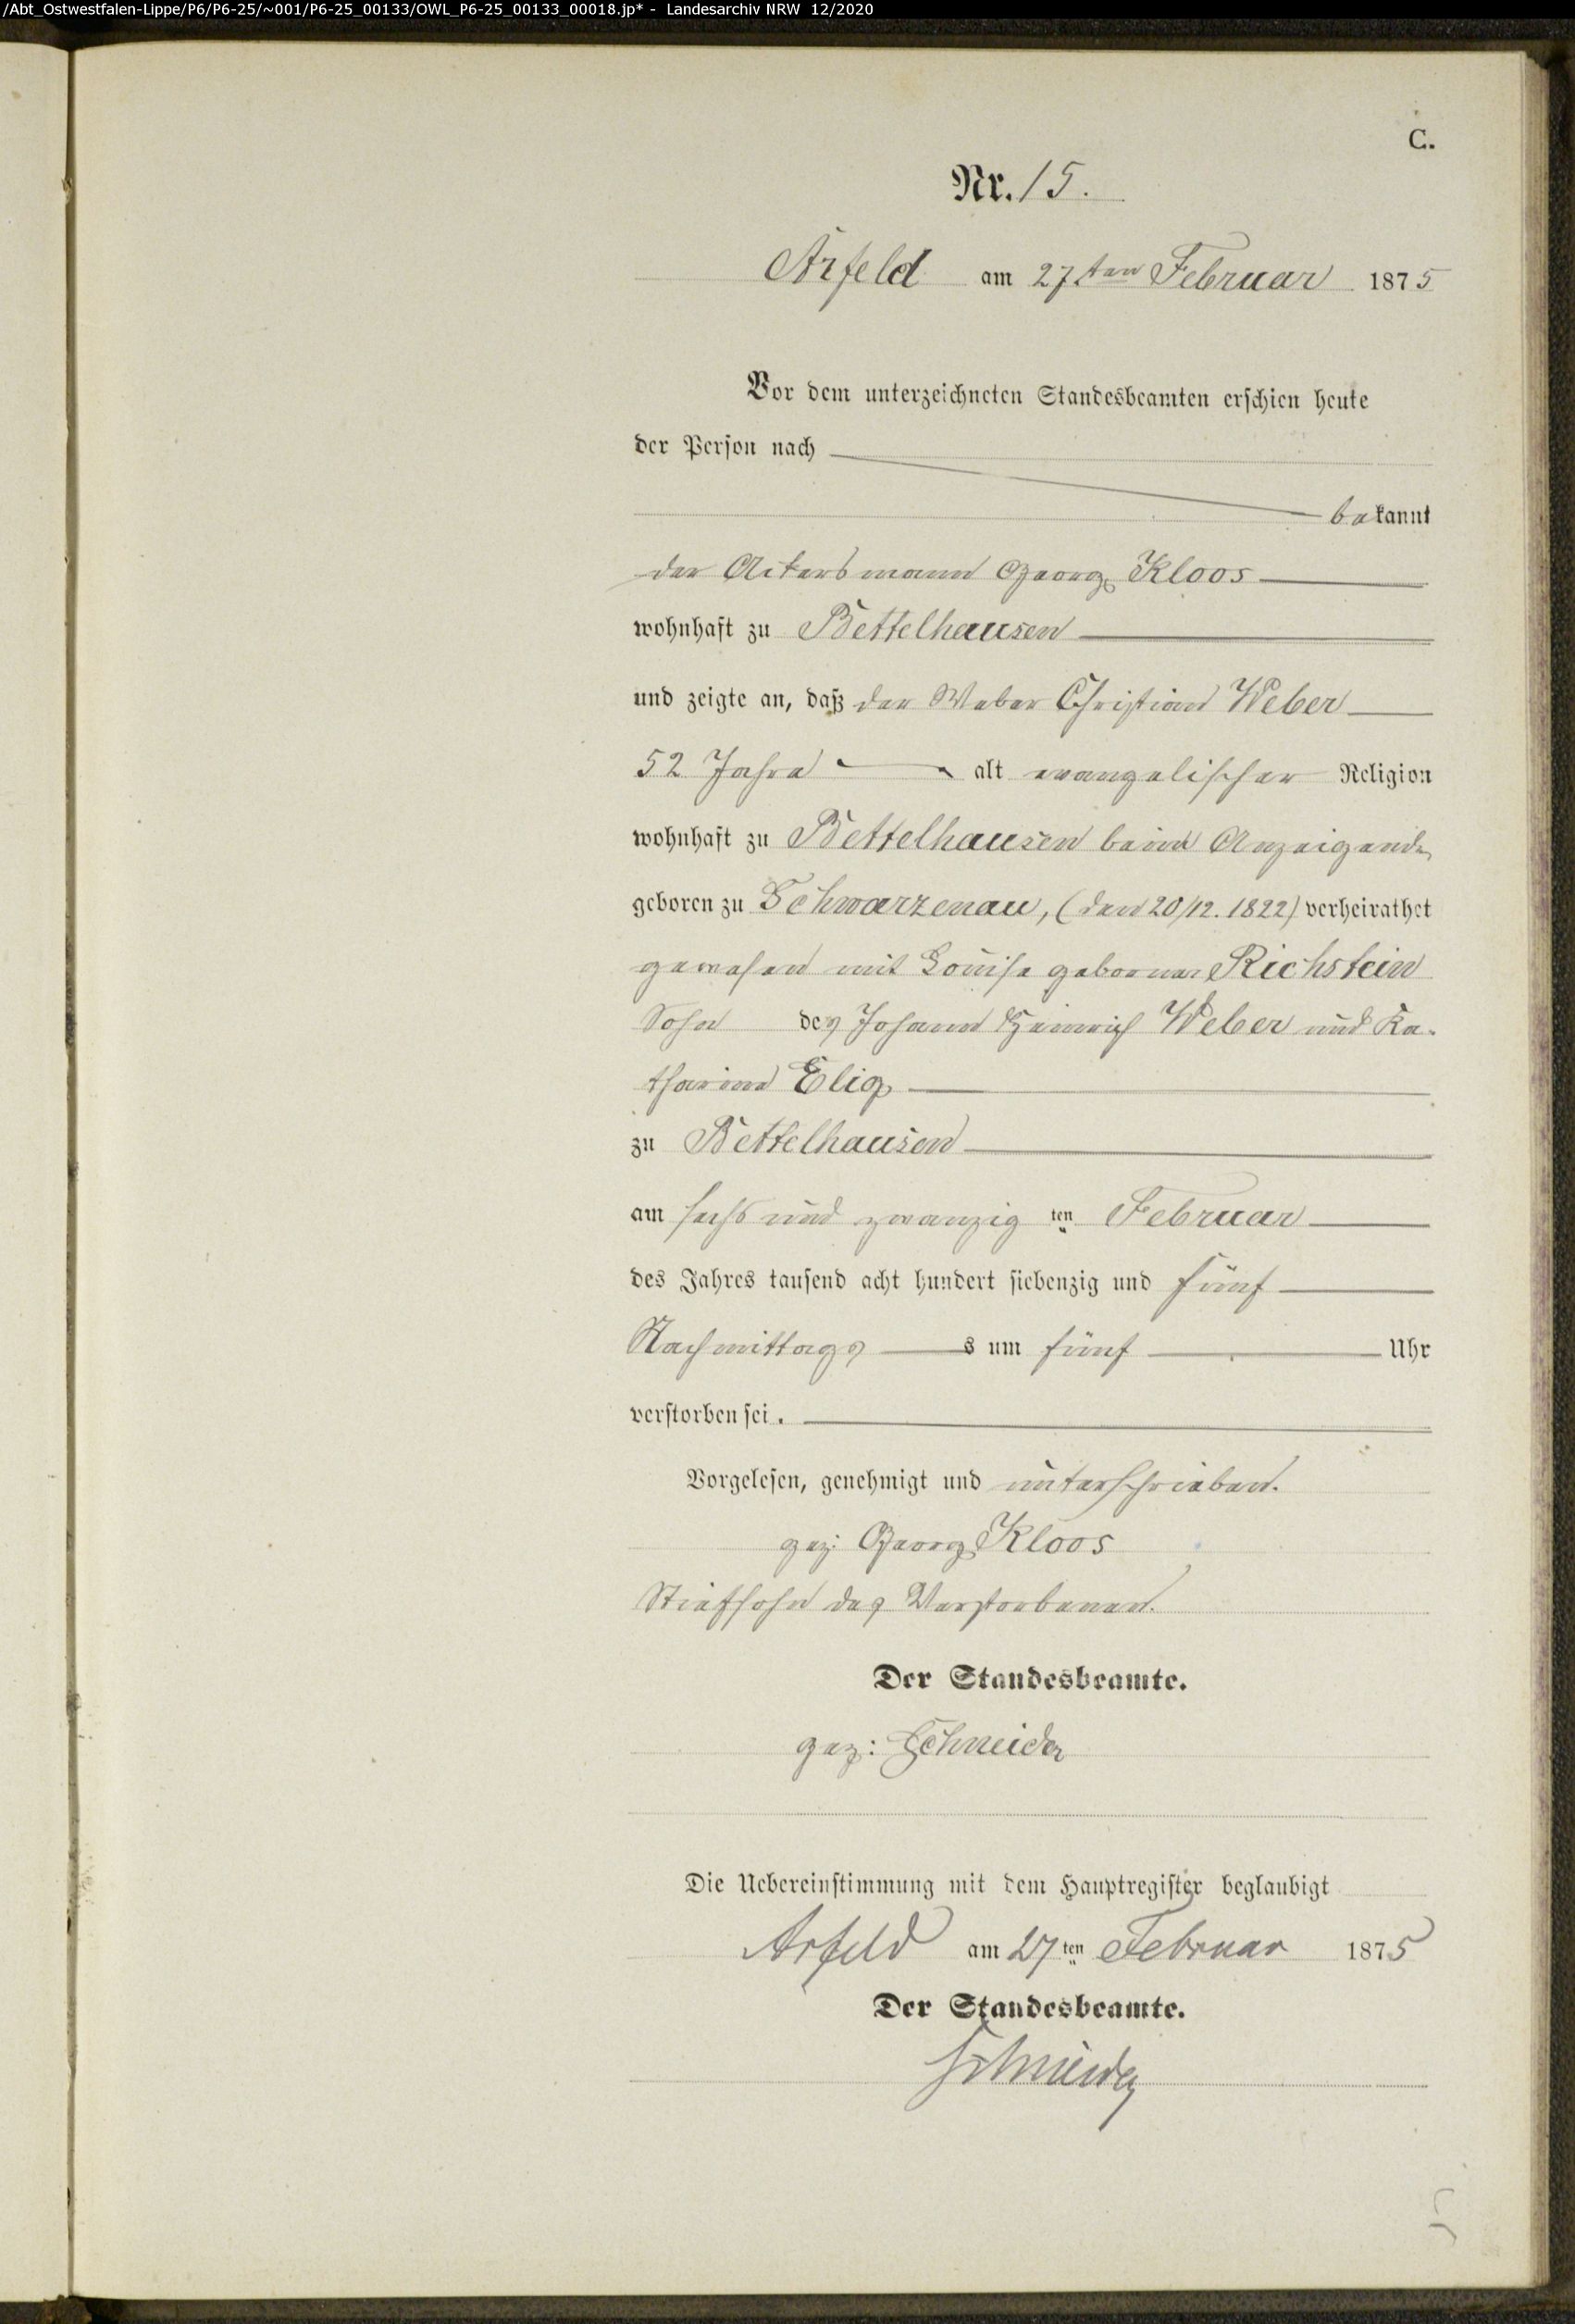 /Abt_Ostwestfalen-Lippe/P6/P6-25/~001/P6-25_00133/OWL_P6-25_00133_00018.jp* - Landesarchiv NRW 12/2020
C.
Nr. 15.
Arfeld am 27ten Februar 1875
Vor dem unterzeichneten Standesbeamten erschien heute
der Person nach
bekannt
der Ackersmann Georg Kloos
wohnhaft zu Bettelhausen
und zeigte an, daß der Weber Christian Weber
52 Jahre alt evangelischer Religion
wohnhaft zu Bettelhausen beim Anzeigenden
geboren zu Schwarzenau, (den 20/12. 1822) verheirathet
gewesen mit Louise geborner Richstein
Sohn des Johann Heinrich Weber und Ka-
tharine Elig
zu Bettelhausen
am sechs und zwanzig ten Februar
des Jahres tausend acht hundert siebenzig und fünf
Nachmittags s um fünf Uhr
verstorben sei.
Vorgelesen, genehmigt und unterschrieben.
gez: Georg Kloos
Stiefsohn des Verstorbenen.
Der Standesbeamte.
gez: Schneider
Die Uebereinstimmung mit dem Hauptregister beglaubigt
Arfeld am 27ten Februar 1875
Der Standesbeamte.
Schneider